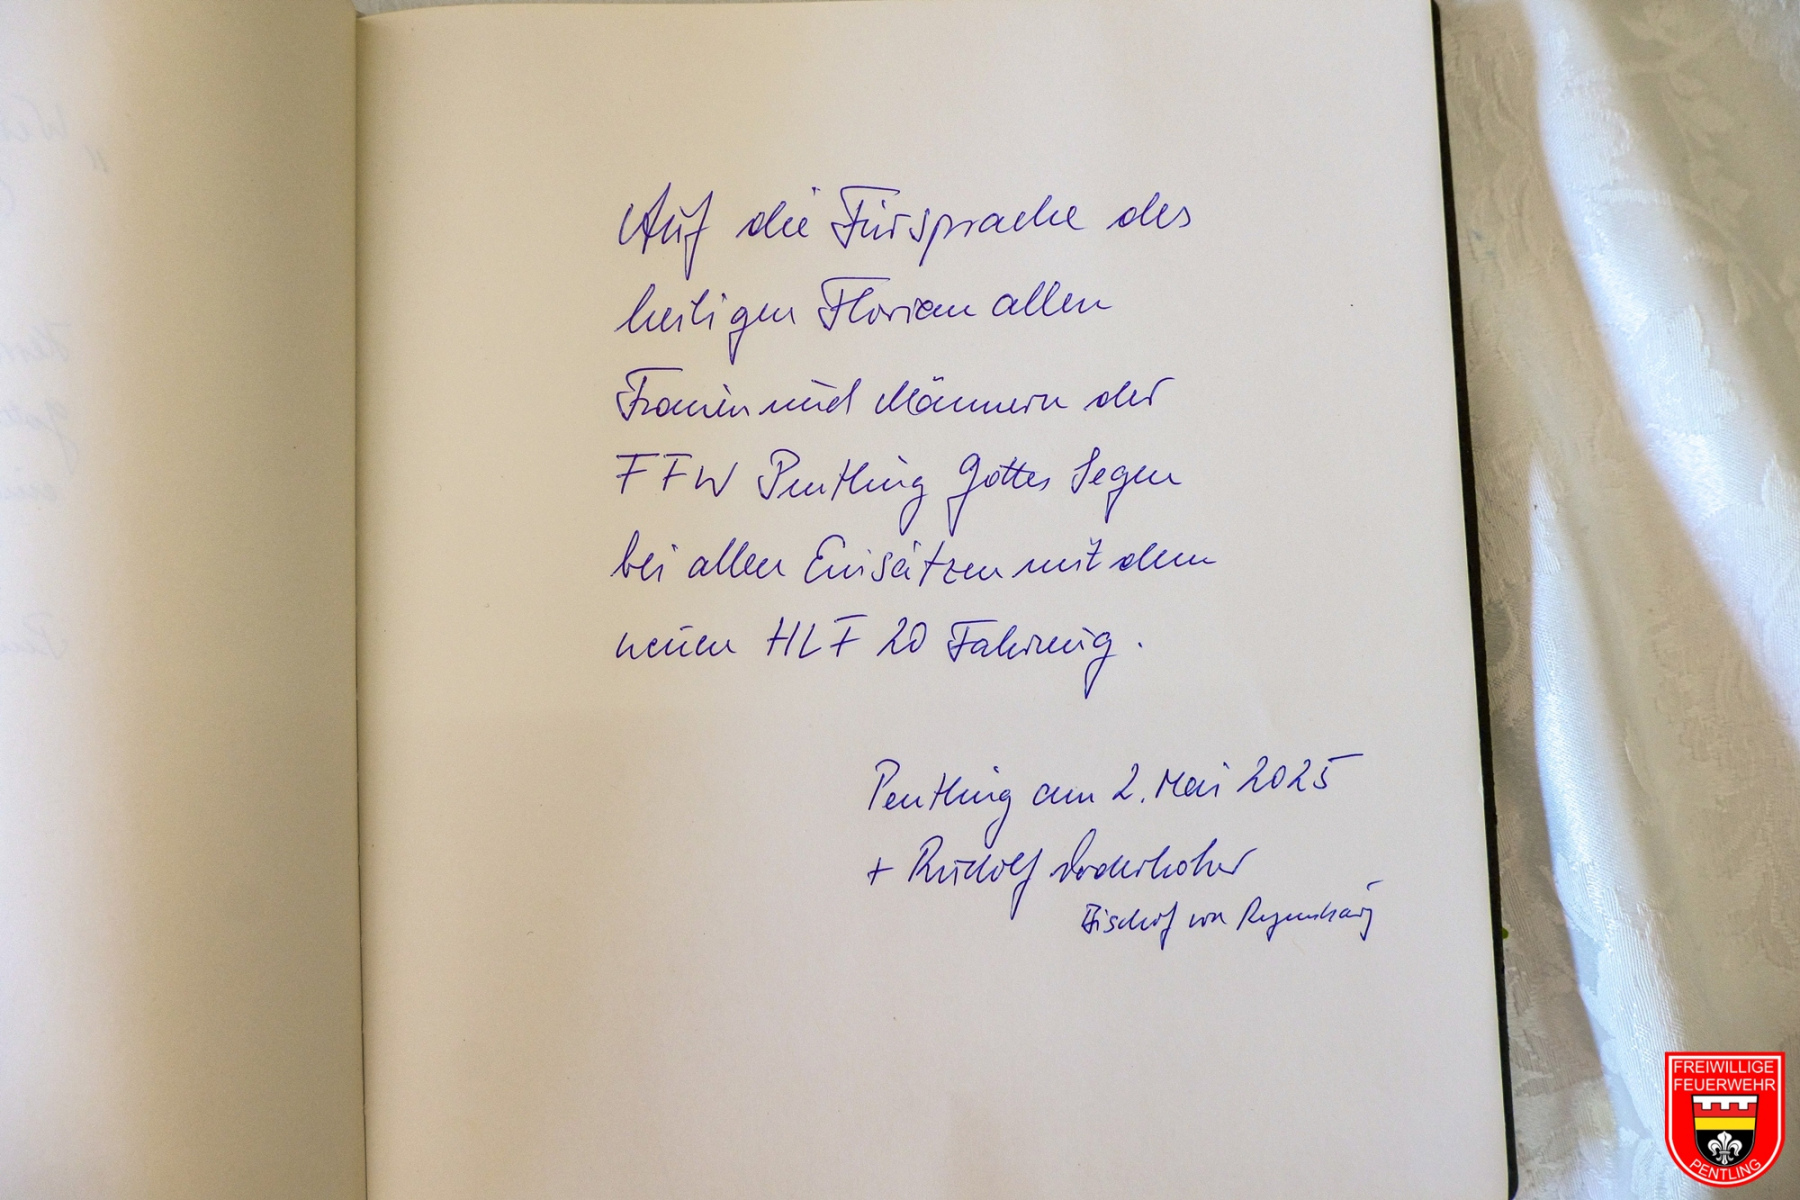 Auf die Fürsprache des
heiligen Florian allen
Frauen und Männern der
FFW Pentling Gottes Segen
bei allen Einsätzen mit dem
neuen HLF 20 Fahrzeug.
Pentling am 2. Mai 2025
+ Rudolf Voderholzer
Bischof von Regensburg
FREIWILLIGE
FEUERWEHR
PENTLING